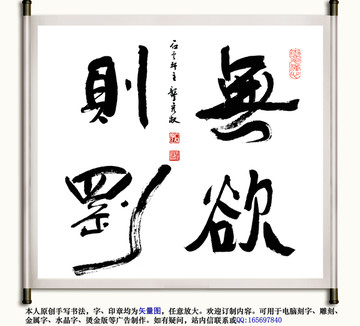 無欲
則剛
本人原创手写书法，字、印章均为矢量图，任意放大。欢迎订制内容。可用于电脑刻字、雕刻、
金属字、水晶字、烫金版等广告制作。如有疑问，站内信联系或QQ:165697840